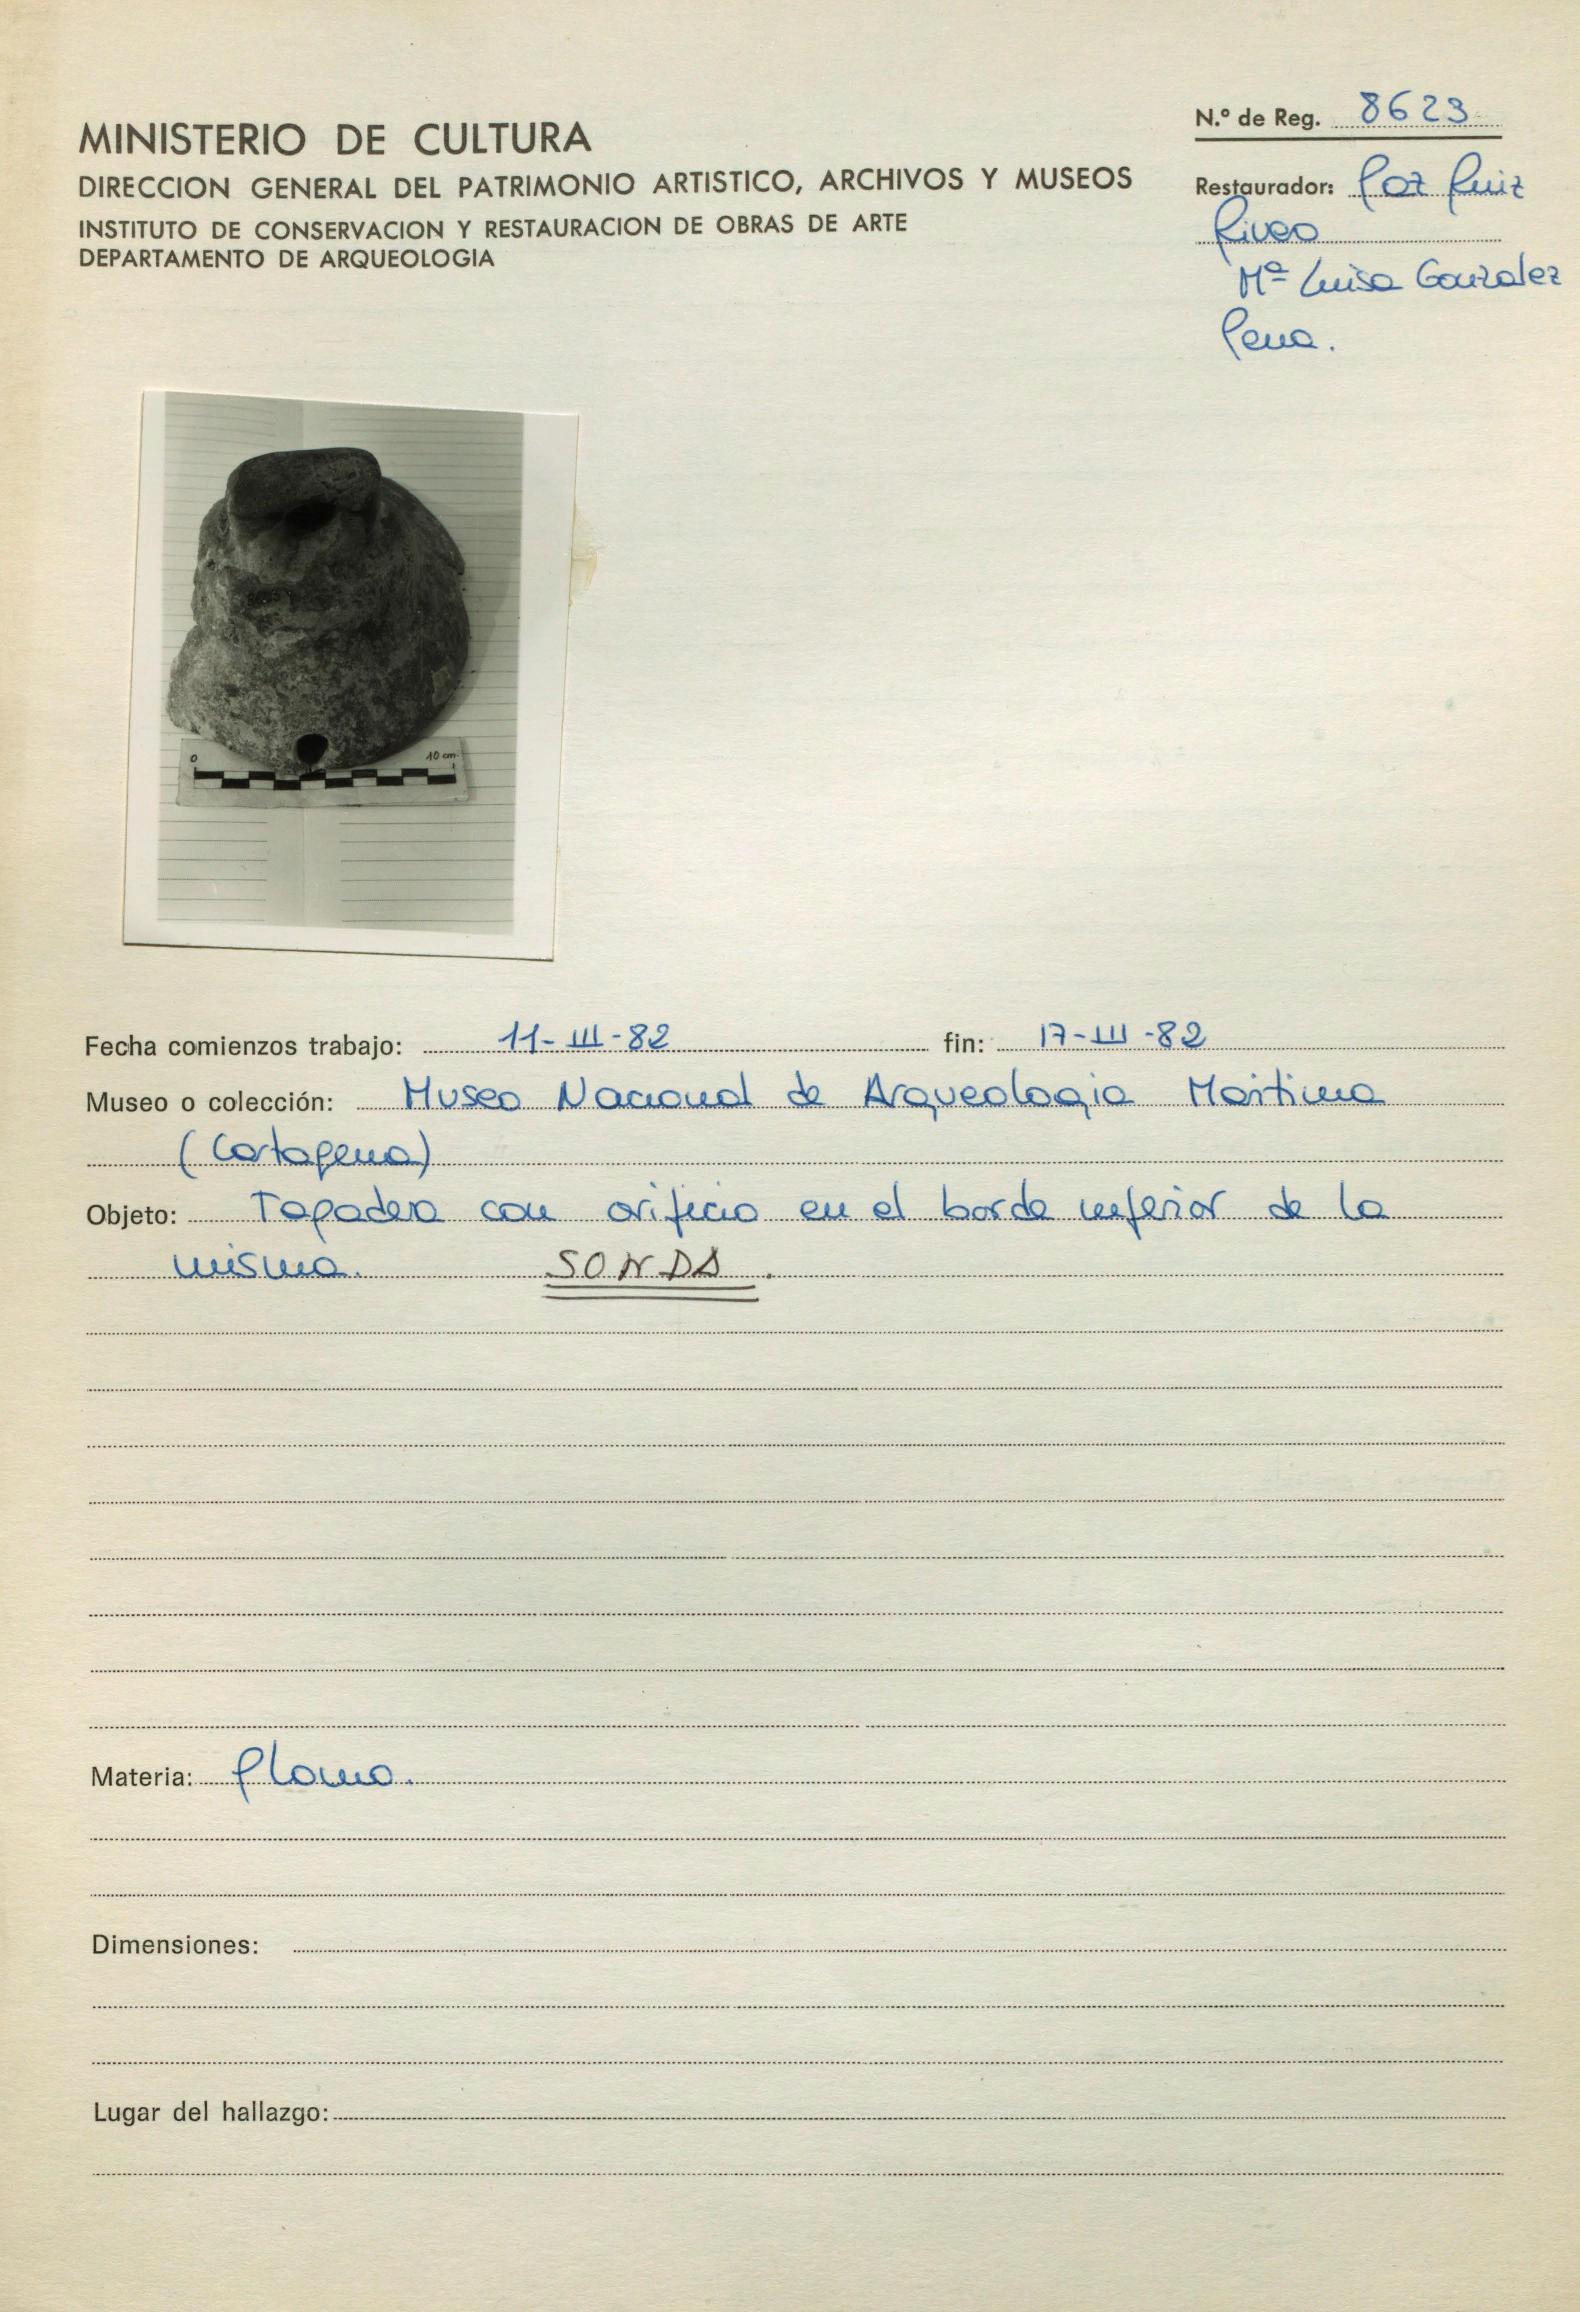 MINISTERIO DE CULTURA
DIRECCION GENERAL DEL PATRIMONIO ARTISTICO, ARCHIVOS Y MUSEOS
INSTITUTO DE CONSERVACION Y RESTAURACION DE OBRAS DE ARTE
DEPARTAMENTO DE ARQUEOLOGIA
N.º de Reg. 8623
Restaurador: Paz Ruiz
Mª Luisa Gonzalez
Pena.
0 10 cm.
Fecha comienzos trabajo: 11-III-82 fin: 17-III-82
Museo o colección: Museo Nacional de Arqueologia Maritima
(Cartagena)
Objeto: Tapadera con orificio en el borde inferior de la
misma. SONDA.
Materia: Plomo.
Dimensiones:
Lugar del hallazgo: